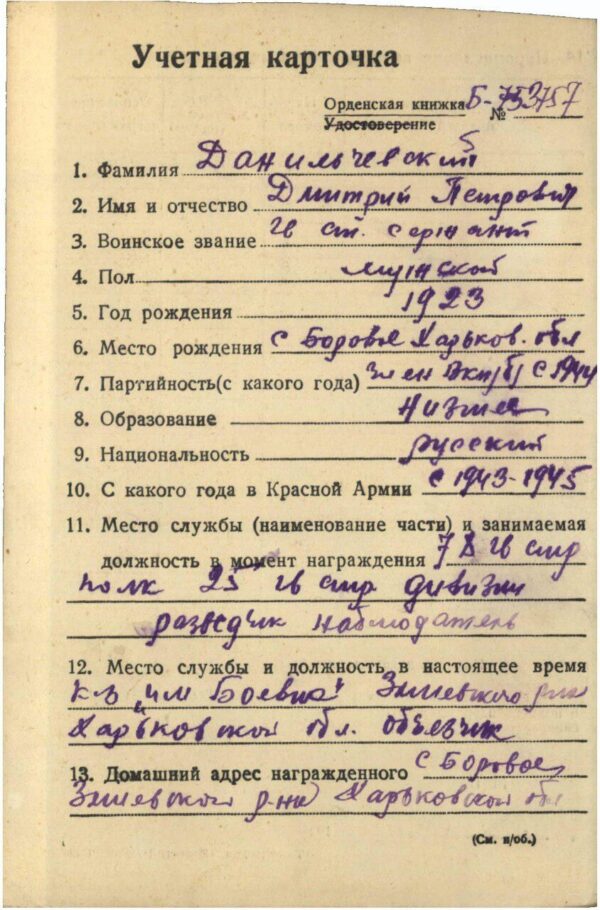 Учетная карточка
Орденская книжка Б-753757
Удостоверение №
1. Фамилия Данильчевский
2. Имя и отчество Дмитрий Петрович
3. Воинское звание гв ст. сержант
4. Пол мужской
5. Год рождения 1923
6. Место рождения с Боровая Харьков. обл
7. Партийность(с какого года) член вкп/б/ с 1944
8. Образование низшее
9. Национальность русский
10. С какого года в Красной Армии с 1943-1945
11. Место службы (наименование части) и занимаемая
должность в момент награждения 78 гв стр
полк 25 гв стр дивизии
разведчик наблюдатель
12. Место службы и должность в настоящее время
Змиевского р-на
Харьковской обл. объезчик
13. Домашний адрес награжденного с Боровое
Змиевского р-на Харьковской обл
(См. н/об.)